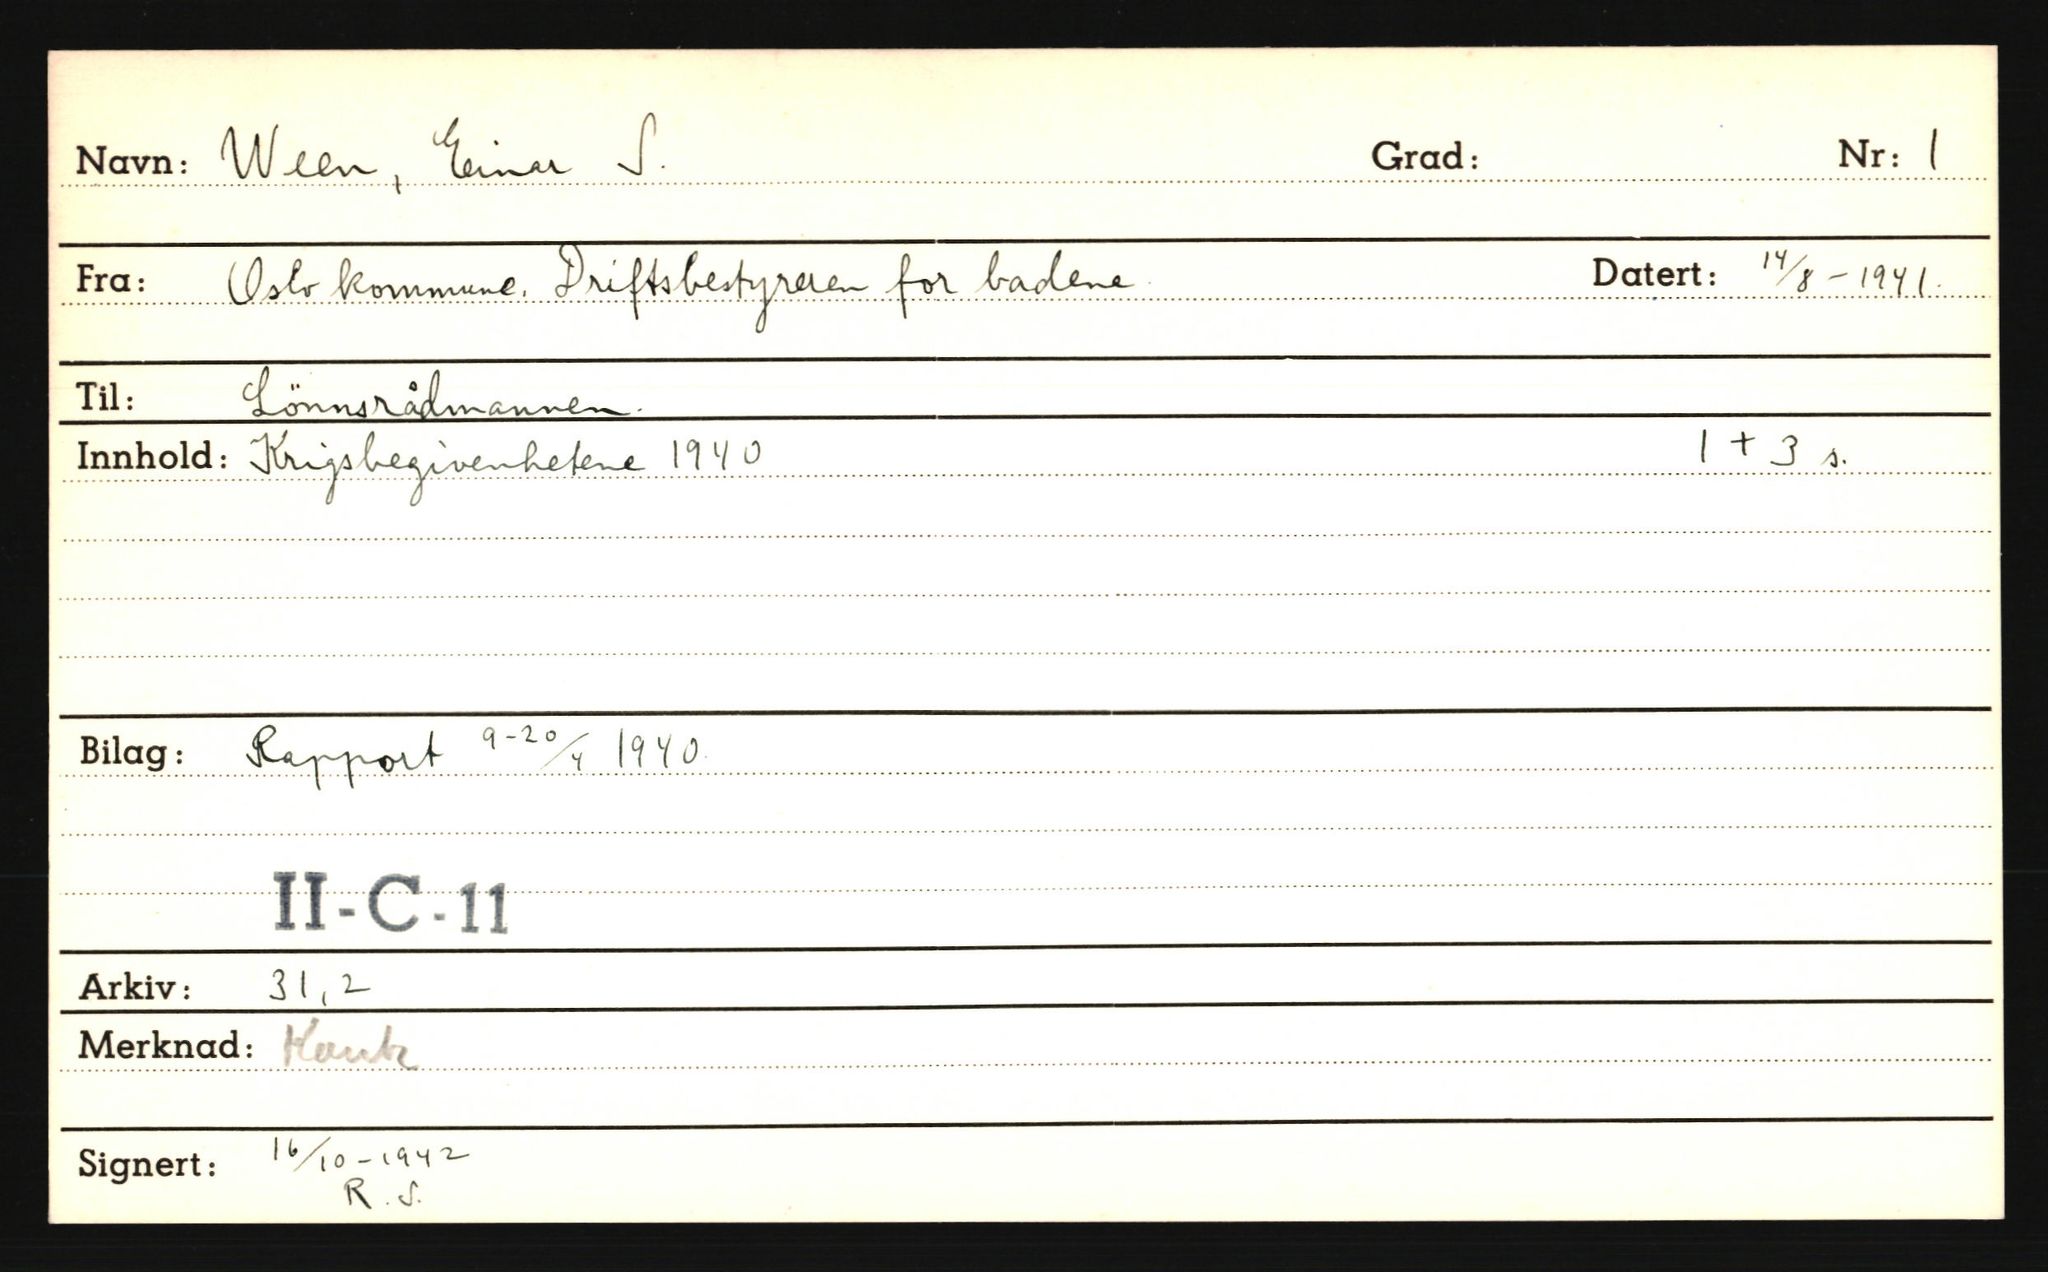 Navn: Ween, Einar S. Grad: Nr: 1
Fra: Oslo kommune. Driftsbestyreren for badene. Datert: 14/8-1941.
Til: Lönnsrådmannen.
Innhold: Krigsbegivenhetene 1940 1 + 3 s.
Bilag: Rapport 9-20/4 1940.
II-C-11
Arkiv: 31,2
Merknad:
Signert: 16/10-1942
R.S.